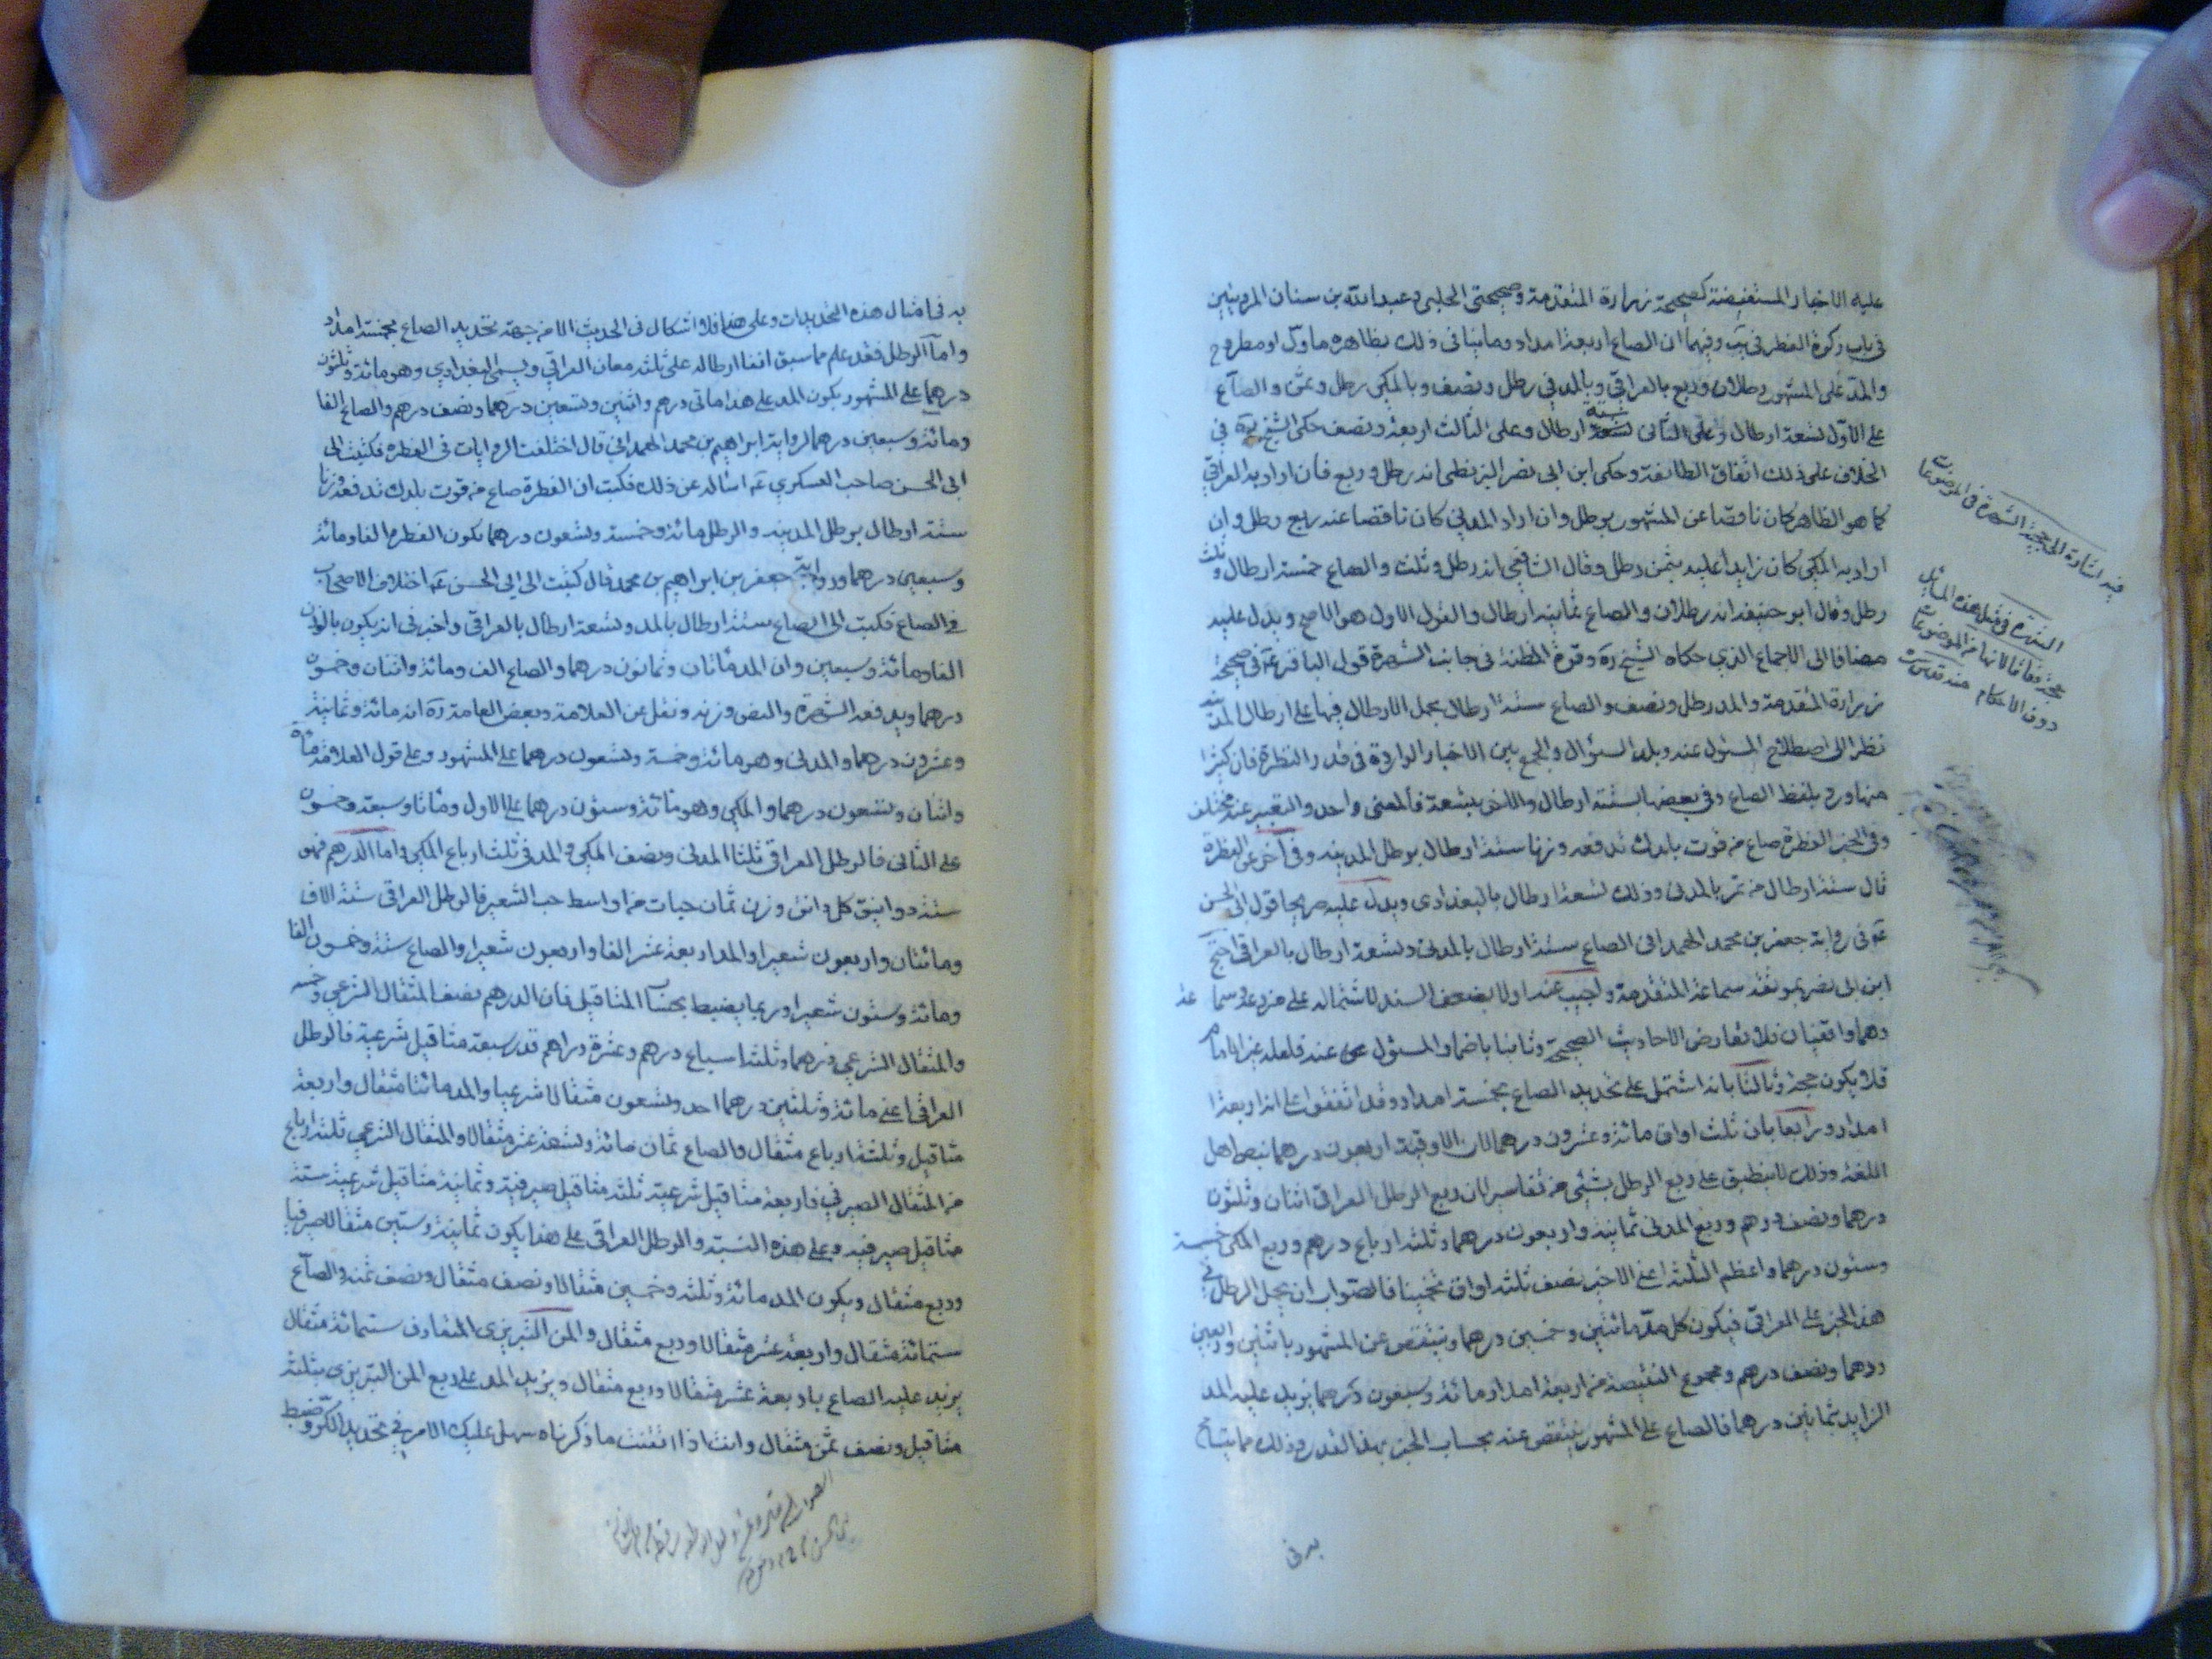 عليه الاخبار المستفيضة كصحيحة زرارة المتقدمة وصحيحتى الحلبى وعبد الله بن سنان المرويتين
فى باب زكوة الفطر فى يب وفيهما ان الصاع اربعة امداد وما ينافى ذلك بظاهره ماوّل او مطروح
والمدّ على المشهور رطلان وربع بالعراقي وبالمدني رطل ونصف وبالمكي رطل وثمن والصاع
على الاوّل تسعة ارطال وعلى الثانى ستة ارطال وعلى الثالث اربعة ونصف حكى الشيخ ره في
الخلاف على ذلك اتفاق الطائفة وحكى ابن ابى نصر البزنطى انه رطل وربع فان اراد به العراقي
كما هو الظاهر كان ناقصا عن المشهور برطل وان اراد المدني كان ناقصا عنه ربع رطل وان
اراد به المكي كان زايدا عليه بثمن رطل وقال الشافعي انه رطل وثلث والصاع خمسة ارطال وثلث
رطل وقال ابو حنيفه انه رطلان والصاع ثمانية ارطال والقول الاول هو الاصح ويدل عليه
مضافا الى الاجماع الذي حكاه الشيخ ره وقوة المظنة فى جانب الشهرة قول الباقر ع في صحيحة
زرارة المتقدمة والمد رطل ونصف والصاع ستة ارطال بحمل الارطال فيها على ارطال المدينه
نظرا الى اصطلاح المسئول عنه وبلد السؤال والجمع بين الاخبار الواردة فى قدر الفطرة فان كثيرا
منها ورد بلفظ الصاع وفى بعضها بالستة ارطال والاخر بتسعة فالمعنى واحد والتعبير عنه مختلف
وفى الخبر الفطرة صاع من قوت بلدك تدفعه وزنا ستة ارطال برطل المدينه وفى آخر عن الفطرة
قال ستة ارطال من تمر بالمدنى وذلك تسعة ارطال بالبغدادى ويدل عليه صريحا قول ابى الحسن
ع فى رواية جعفر بن محمد الهمدانى الصاع ستة ارطال بالمدنى وتسعة ارطال بالعراقى احتج
ابن ابى نصر بموثقة سماعة المتقدمة واجيب عنه اولا بضعف السند لاشتماله على زرعة وسماعة
وهما واقفيان فلا تعارض الاحاديث الصحيحة وثانيا باضمار المسئول عنه فلعله غير الامام
فلا يكون حجة وثالثا بانه اشتمل على تحديد الصاع بخمسة امداد وقد اتفقوا على انه اربعة
امداد ورابعا بان ثلث اواق مائة وعشرون درهما لان الاوقية اربعون درهما بنص اهل
اللغة وذلك لا ينطبق على ربع الرطل بشيء من تفاسيره لان ربع الرطل العراقى اثنان وثلثون
درهما ونصف درهم وربع المدنى ثمانية واربعون درهما وثلثة ارباع درهم وربع المكى خمسة
وستون درهما واعظم الثلثة اعنى الاخير نصف ثلثة اواق تخمينا فالصواب ان يحمل الرطل في
هذا الخبر على العراقى فيكون كل مد مائتين وخمسين درهما وينتقص عن المشهور باثنين واربعين
درهما ونصف درهم ومجموع النقيصة من اربعة امداد مائة وسبعون درهما يزيد عليه المد
الزايد بثمانين درهما فالصاع على المشهور ينتقص عنه بحساب الخبر بهذا القدر وذلك مما يتسامح
به فى
فيه اشارة الى حجية الشهرة فى الموضوعات
الشهرة فى مثل هذه المسائل
حجة وفاقا لانها من الموضوعات
دون الاحكام منه قدس سره
به فى امثال هذه التحديدات وعلى هذا فلا اشكال فى الحديث الا من جهة تحديد الصاع بخمسة امداد
واما الرطل فقد علم مما سبق انفا ارطاله على ثلثة معان العراقي ويسمى البغدادي وهو مائة وثلثون
درهما على المشهور يكون المد على هذا ماتى درهم واثنين وتسعين درهما ونصف درهم والصاع الفا
ومائة وسبعين درهما لرواية ابراهيم بن محمد الهمدانى قال اختلفت الروايات فى الفطرة فكتبت الى
ابى الحسن صاحب العسكري ع اسأله عن ذلك فكتب ان الفطرة صاع من قوت بلدك تدفعه وزنا
ستة ارطال برطل المدينه والرطل مائة وخمسة وتسعون درهما تكون الفطرة الفا ومائة
وسبعين درهما ورواية جعفر بن ابراهيم بن محمد قال كتبت الى ابي الحسن ع اختلاف الاصحاب
فى الصاع فكتب الى الصاع ستة ارطال بالمد وتسعة ارطال بالعراقى واخبرنى انه يكون بالوزن
الفا ومائة وسبعين وان المد مائتان وثمانون درهما والصاع الف ومائة واثنان وخمسون
درهما ويدفعه الشهرة والنص وزنه ونقل عن العلامة وبعض العامة ره انه مائة وثمانية
وعشرون درهما والمدنى وهو مائة وخمسة وتسعون درهما على المشهور وعلى قول العلامة مائة
واثنان وتسعون درهما والمكي وهو مائة وستون درهما على الاول ومائتا وسبعة وخمسون
على الثانى فالرطل العراقى ثلثا المدنى ونصف المكي والمدنى ثلثة ارباع المكى واما الدرهم فهو
ستة دوانيق كل دانق وزن ثمان حبات من اواسط حب الشعير فالرطل العراقى ستة الاف
ومائتان واربعون شعيرا والمد اربعة عشر الفا واربعون شعيرا والصاع ستة وخمسون الفا
ومائة وستون شعيرا وربما يضبط بحساب المثاقيل فان الدرهم نصف المثقال الشرعي وخمسه
والمثقال الشرعي درهما وثلثة اسباع درهم وعشرة دراهم قدر سبعة مثاقيل شرعية فالرطل
العراقى اعنى مائة وثلثين درهما احد وتسعون مثقالا شرعيا والمد مائتا مثقال واربعة
مثاقيل وثلثة ارباع مثقال والصاع ثمان مائة وتسعة عشر مثقالا والمثقال الشرعي ثلثة ارباع
من المثقال الصيرفي فاربعة مثاقيل شرعية ثلثة مثاقيل صيرفية وثمانية مثاقيل شرعية ستة
مثاقيل صيرفيه وعلى هذه النسبة والرطل العراقى على هذا يكون ثمانية وستين مثقالا صيرفيا
وربع مثقال ويكون المد مائة وثلثة وخمسين مثقالا ونصف مثقال ونصف ثمنه والصاع
ستمائة مثقال واربعة عشر مثقالا وربع مثقال والمن التبريزى المتعارف ستمائة مثقال
يزيد عليه الصاع باربعة عشر مثقالا وربع مثقال ويزيد المد على ربع المن التبريزى بثلثة
مثاقيل ونصف ثمن مثقال وانت اذا اتقنت ما ذكرناه سهل عليك الامر في تحديد الكر وضبط